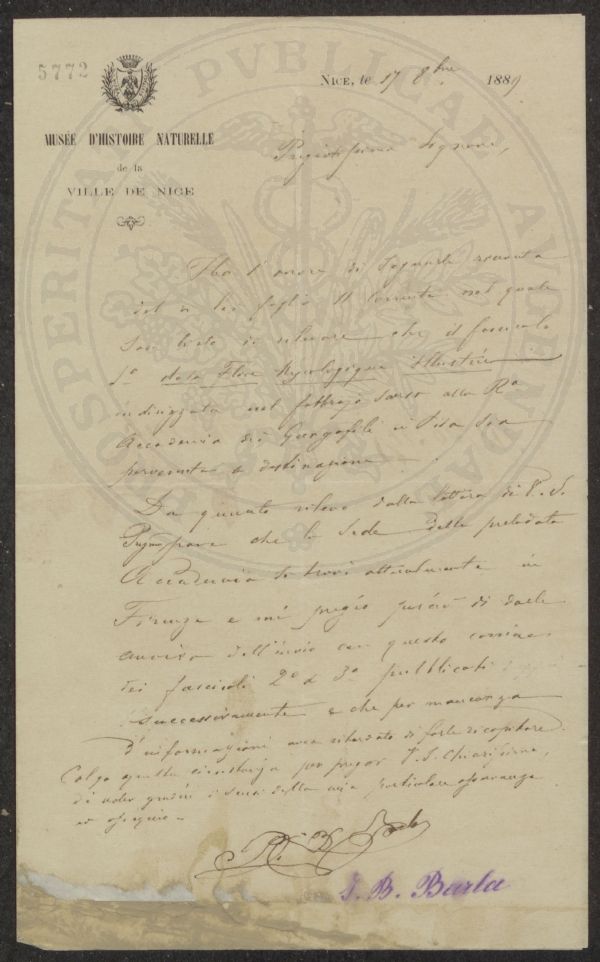 5772
NICE, le 17 8bre 1889
MUSÉE D'HISTOIRE NATURELLE
de la
VILLE DE NICE
PVBLICAE
Pregiatissimo Signore,
Ho l'onore di
del foglio 11 corrente nel quale
lieto di rilevare che il fascicolo
1º della Flore Mycologique Illustrée
indirizzato nel febbrajo scorso alla Rª
Accademia dei Georgofili in Pisa sia
pervenuto a destinazione.
Da quanto rilevo dalla lettera di V. S.
pare che la Sede della prelodata
Accademia si trovi attualmente in
Firenze e mi pregio perciò di darle
avviso dell'invio con questo corriere
dei fascicoli 2º e 3º pubblicati
successivamente e che per mancanza
d'informazioni avea ritardato di farle ricapitare.
Colgo questa circostanza per pregar V. S. Chiarissima,
di voler gradire i sensi della mia particolare osservanza
ed ossequio.
J. B. Barla
J. B. Barla